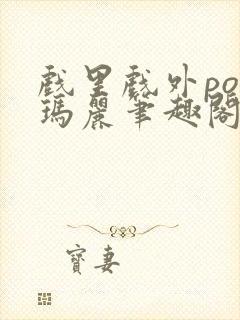 戲里戲外po
瑪麗筆趣閣
寶妻